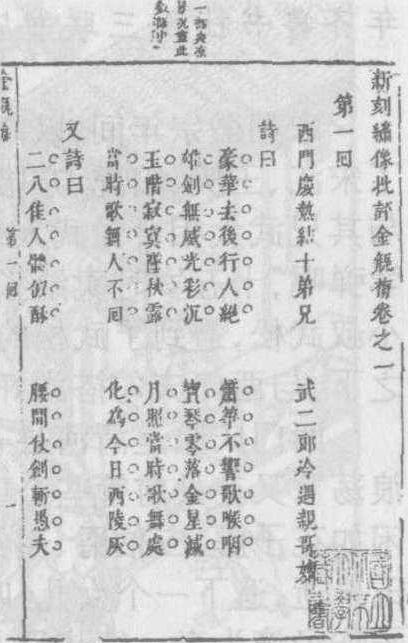 一部炎凉
景况盡此
數語中
新刻繡像批評金瓶梅卷之一
第一回
西門慶熱結十弟兄　武二郎冷遇親哥嫂
詩曰
豪華去後行人絕　簫箏不響歌喉咽
雄劍無威光彩沉　寶琴零落金星滅
玉階寂寞墜秋露　月照當時歌舞處
當時歌舞人不回　化為今日西陵灰
又詩曰
二八佳人體似酥　腰間仗劍斬愚夫
金瓶梅　第一回　一